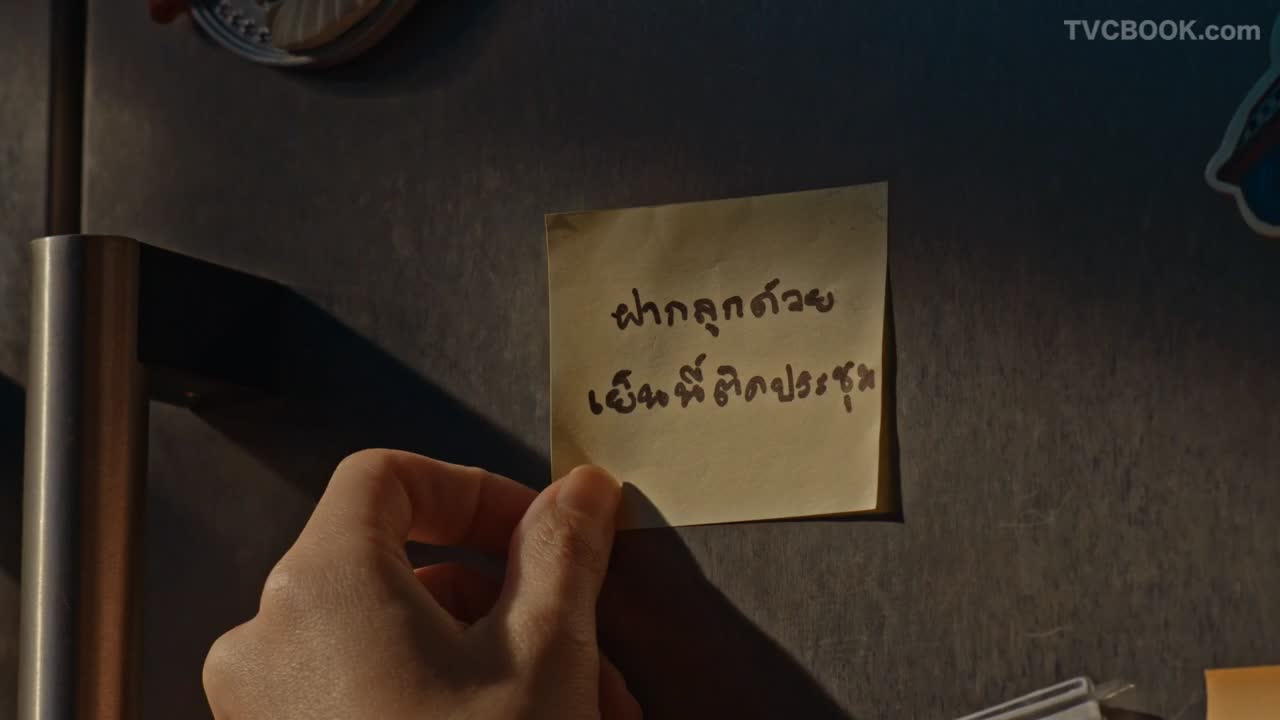 TVCBOOK.com
ฝากลูกด้วย
เย็นนี้ติดประชุม